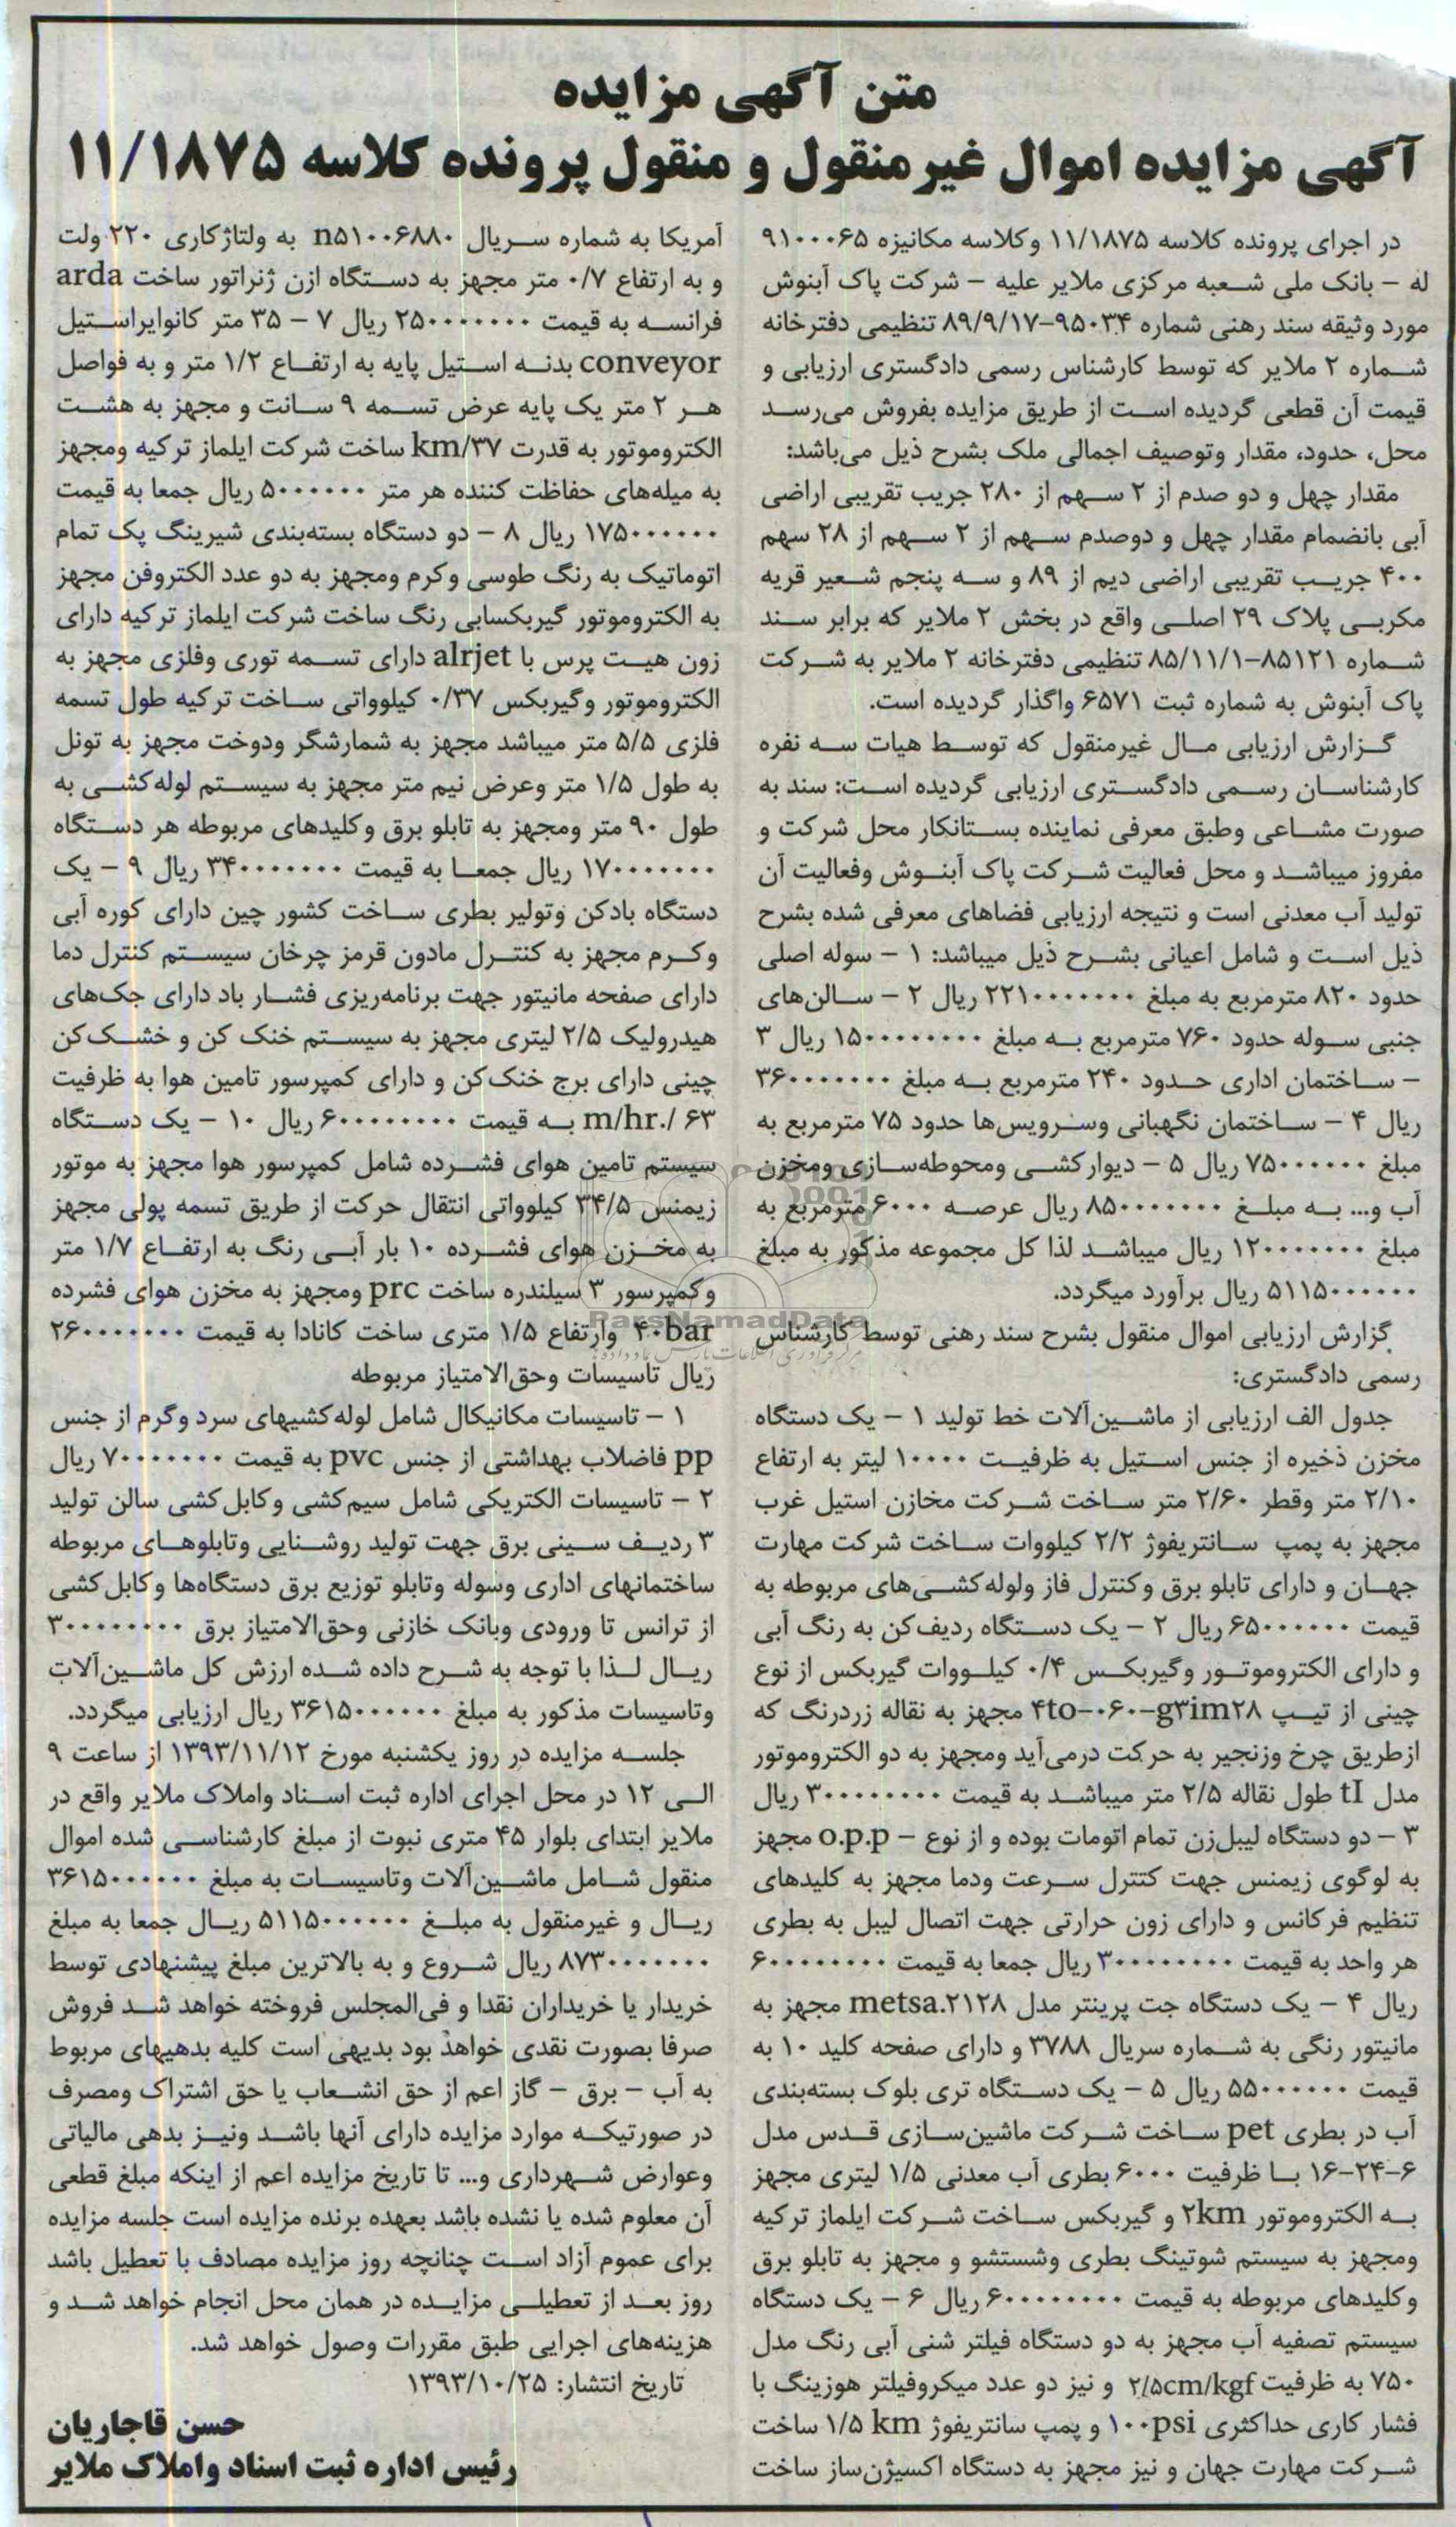 متن آگهی مزایده
آگهی مزایده اموال غیرمنقول و منقول پرونده کلاسه ۱۱/۱۸۷۵
در اجرای پرونده کلاسه ۱۱/۱۸۷۵ وکلاسه مکانیزه ۹۱۰۰۰۶۵
له – بانک ملی شعبه مرکزی ملایر علیه – شرکت پاک آبنوش
مورد وثیقه سند رهنی شماره ۹۵۰۳۴-۸۹/۹/۱۷ تنظیمی دفترخانه
شماره ۲ ملایر که توسط کارشناس رسمی دادگستری ارزیابی و
قیمت آن قطعی گردیده است از طریق مزایده بفروش می‌رسد
محل، حدود، مقدار وتوصیف اجمالی ملک بشرح ذیل می‌باشد:
مقدار چهل و دو صدم از ۲ سهم از ۲۸۰ جریب تقریبی اراضی
آبی بانضمام مقدار چهل و دوصدم سهم از ۲ سهم از ۲۸ سهم
۴۰۰ جریب تقریبی اراضی دیم از ۸۹ و سه پنجم شعیر قریه
مکربی پلاک ۲۹ اصلی واقع در بخش ۲ ملایر که برابر سند
شماره ۸۵۱۲۱-۸۵/۱۱/۱ تنظیمی دفترخانه ۲ ملایر به شرکت
پاک آبنوش به شماره ثبت ۶۵۷۱ واگذار گردیده است.
گزارش ارزیابی مال غیرمنقول که توسط هیات سه نفره
کارشناسان رسمی دادگستری ارزیابی گردیده است: سند به
صورت مشاعی وطبق معرفی نماینده بستانکار محل شرکت و
مفروز میباشد و محل فعالیت شرکت پاک آبنوش وفعالیت آن
تولید آب معدنی است و نتیجه ارزیابی فضاهای معرفی شده بشرح
ذیل است و شامل اعیانی بشرح ذیل میباشد: ۱ – سوله اصلی
حدود ۸۲۰ مترمربع به مبلغ ۲۲۱۰۰۰۰۰۰۰ ریال ۲ – سالن‌های
جنبی سوله حدود ۷۶۰ مترمربع به مبلغ ۱۵۰۰۰۰۰۰۰۰ ریال ۳
– ساختمان اداری حدود ۲۴۰ مترمربع به مبلغ ۳۶۰۰۰۰۰۰۰
ریال ۴ – ساختمان نگهبانی وسرویس‌ها حدود ۷۵ مترمربع به
مبلغ ۷۵۰۰۰۰۰۰ ریال ۵ – دیوارکشی ومحوطه‌سازی ومخزن
آب و... به مبلغ ۸۵۰۰۰۰۰۰۰ ریال عرصه ۶۰۰۰ مترمربع به
مبلغ ۱۲۰۰۰۰۰۰۰ ریال میباشد لذا کل مجموعه مذکور به مبلغ
۵۱۱۵۰۰۰۰۰۰ ریال برآورد میگردد.
گزارش ارزیابی اموال منقول بشرح سند رهنی توسط کارشناس
رسمی دادگستری:
جدول الف ارزیابی از ماشین‌آلات خط تولید ۱ – یک دستگاه
مخزن ذخیره از جنس استیل به ظرفیت ۱۰۰۰۰ لیتر به ارتفاع
۲/۱۰ متر وقطر ۲/۶۰ متر ساخت شرکت مخازن استیل غرب
مجهز به پمپ سانتریفوژ ۲/۲ کیلووات ساخت شرکت مهارت
جهان و دارای تابلو برق وکنترل فاز ولوله‌کشی‌های مربوطه به
قیمت ۶۵۰۰۰۰۰۰ ریال ۲ – یک دستگاه ردیف‌کن به رنگ آبی
و دارای الکتروموتور وگیربکس ۰/۴ کیلووات گیربکس از نوع
چینی از تیپ ۴to-۰۶۰-g۳im۲۸ مجهز به نقاله زردرنگ که
ازطریق چرخ وزنجیر به حرکت درمی‌آید ومجهز به دو الکتروموتور
مدل tI طول نقاله ۲/۵ متر میباشد به قیمت ۳۰۰۰۰۰۰۰۰ ریال
۳ – دو دستگاه لیبل‌زن تمام اتومات بوده و از نوع – o.p.p مجهز
به لوگوی زیمنس جهت کنترل سرعت ودما مجهز به کلیدهای
تنظیم فرکانس و دارای زون حرارتی جهت اتصال لیبل به بطری
هر واحد به قیمت ۳۰۰۰۰۰۰۰۰ ریال جمعا به قیمت ۶۰۰۰۰۰۰۰۰
ریال ۴ – یک دستگاه جت پرینتر مدل metsa.۲۱۲۸ مجهز به
مانیتور رنگی به شماره سریال ۳۷۸۸ و دارای صفحه کلید ۱۰ به
قیمت ۵۵۰۰۰۰۰۰ ریال ۵ – یک دستگاه تری بلوک بسته‌بندی
آب در بطری pet ساخت شرکت ماشین‌سازی قدس مدل
۶-۲۴-۱۶ با ظرفیت ۶۰۰۰ بطری آب معدنی ۱/۵ لیتری مجهز
به الکتروموتور ۲km و گیربکس ساخت شرکت ایلماز ترکیه
ومجهز به سیستم شوتینگ بطری وشستشو و مجهز به تابلو برق
وکلیدهای مربوطه به قیمت ۶۰۰۰۰۰۰۰۰ ریال ۶ – یک دستگاه
سیستم تصفیه آب مجهز به دو دستگاه فیلتر شنی آبی رنگ مدل
۷۵۰ به ظرفیت ۲/۵cm/kgf و نیز دو عدد میکروفیلتر هوزینگ با
فشار کاری حداکثری ۱۰۰psi و پمپ سانتریفوژ ۱/۵ km ساخت
شرکت مهارت جهان و نیز مجهز به دستگاه اکسیژن‌ساز ساخت
آمریکا به شماره سریال n۵۱۰۰۶۸۸۰ به ولتاژکاری ۲۲۰ ولت
و به ارتفاع ۰/۷ متر مجهز به دستگاه ازن ژنراتور ساخت arda
فرانسه به قیمت ۲۵۰۰۰۰۰۰۰ ریال ۷ – ۳۵ متر کانوایراستیل
conveyor بدنه استیل پایه به ارتفاع ۱/۲ متر و به فواصل
هر ۲ متر یک پایه عرض تسمه ۹ سانت و مجهز به هشت
الکتروموتور به قدرت km/۳۷ ساخت شرکت ایلماز ترکیه ومجهز
به میله‌های حفاظت کننده هر متر ۵۰۰۰۰۰۰ ریال جمعا به قیمت
۱۷۵۰۰۰۰۰۰ ریال ۸ – دو دستگاه بسته‌بندی شیرینگ پک تمام
اتوماتیک به رنگ طوسی وکرم ومجهز به دو عدد الکتروفن مجهز
به الکتروموتور گیربکسابی رنگ ساخت شرکت ایلماز ترکیه دارای
زون هیت پرس با alrjet دارای تسمه توری وفلزی مجهز به
الکتروموتور وگیربکس ۰/۳۷ کیلوواتی ساخت ترکیه طول تسمه
فلزی ۵/۵ متر میباشد مجهز به شمارشگر ودوخت مجهز به تونل
به طول ۱/۵ متر وعرض نیم متر مجهز به سیستم لوله‌کشی به
طول ۹۰ متر ومجهز به تابلو برق وکلیدهای مربوطه هر دستگاه
۱۷۰۰۰۰۰۰۰ ریال جمعا به قیمت ۳۴۰۰۰۰۰۰۰ ریال ۹ – یک
دستگاه بادکن وتولیر بطری ساخت کشور چین دارای کوره آبی
وکرم مجهز به کنترل مادون قرمز چرخان سیستم کنترل دما
دارای صفحه مانیتور جهت برنامه‌ریزی فشار باد دارای جک‌های
هیدرولیک ۲/۵ لیتری مجهز به سیستم خنک کن و خشک‌کن
چینی دارای برج خنک‌کن و دارای کمپرسور تامین هوا به ظرفیت
۶۳ /.m/hr به قیمت ۶۰۰۰۰۰۰۰۰ ریال ۱۰ – یک دستگاه
سیستم تامین هوای فشرده شامل کمپرسور هوا مجهز به موتور
زیمنس ۳۴/۵ کیلوواتی انتقال حرکت از طریق تسمه پولی مجهز
به مخزن هوای فشرده ۱۰ بار آبی رنگ به ارتفاع ۱/۷ متر
وکمپرسور ۳ سیلندره ساخت prc ومجهز به مخزن هوای فشرده
۴۰bar وارتفاع ۱/۵ متری ساخت کانادا به قیمت ۲۶۰۰۰۰۰۰۰
ریال تاسیسات وحق‌الامتیاز مربوطه
۱ – تاسیسات مکانیکال شامل لوله‌کشیهای سرد وگرم از جنس
pp فاضلاب بهداشتی از جنس pvc به قیمت ۷۰۰۰۰۰۰۰ ریال
۲ – تاسیسات الکتریکی شامل سیم‌کشی وکابل‌کشی سالن تولید
۳ ردیف سینی برق جهت تولید روشنایی وتابلوهای مربوطه
ساختمانهای اداری وسوله وتابلو توزیع برق دستگاه‌ها وکابل‌کشی
از ترانس تا ورودی وبانک خازنی وحق‌الامتیاز برق ۳۰۰۰۰۰۰۰۰
ریال لذا با توجه به شرح داده شده ارزش کل ماشین‌آلات
وتاسیسات مذکور به مبلغ ۳۶۱۵۰۰۰۰۰۰ ریال ارزیابی میگردد.
جلسه مزایده در روز یکشنبه مورخ ۱۳۹۳/۱۱/۱۲ از ساعت ۹
الی ۱۲ در محل اجرای اداره ثبت اسناد واملاک ملایر واقع در
ملایر ابتدای بلوار ۴۵ متری نبوت از مبلغ کارشناسی شده اموال
منقول شامل ماشین‌آلات وتاسیسات به مبلغ ۳۶۱۵۰۰۰۰۰۰
ریال و غیرمنقول به مبلغ ۵۱۱۵۰۰۰۰۰۰ ریال جمعا به مبلغ
۸۷۳۰۰۰۰۰۰۰ ریال شروع و به بالاترین مبلغ پیشنهادی توسط
خریدار یا خریداران نقدا و فی‌المجلس فروخته خواهد شد فروش
صرفا بصورت نقدی خواهد بود بدیهی است کلیه بدهیهای مربوط
به آب – برق – گاز اعم از حق انشعاب یا حق اشتراک ومصرف
در صورتیکه موارد مزایده دارای آنها باشد ونیز بدهی مالیاتی
وعوارض شهرداری و... تا تاریخ مزایده اعم از اینکه مبلغ قطعی
آن معلوم شده یا نشده باشد بعهده برنده مزایده است جلسه مزایده
برای عموم آزاد است چنانچه روز مزایده مصادف با تعطیل باشد
روز بعد از تعطیلی مزایده در همان محل انجام خواهد شد و
هزینه‌های اجرایی طبق مقررات وصول خواهد شد.
تاریخ انتشار: ۱۳۹۳/۱۰/۲۵
حسن قاجاریان
رئیس اداره ثبت اسناد واملاک ملایر
ParsNamadData